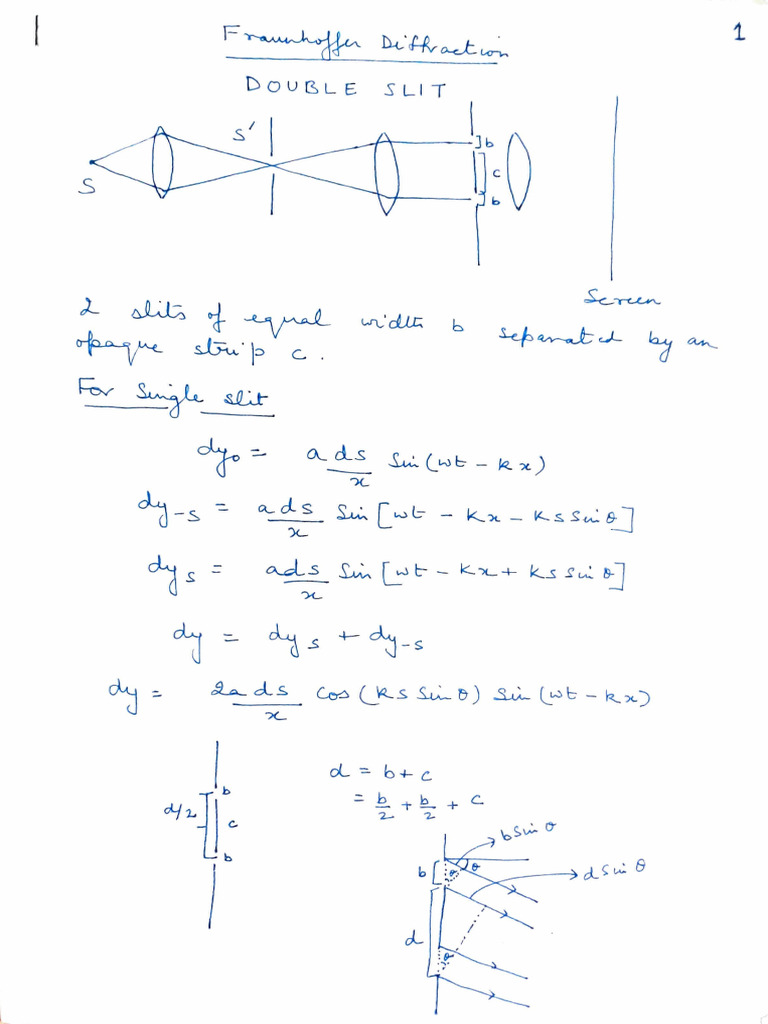 1
Fraunhoffer Diffraction
DOUBLE SLIT
S
S'
b
c
b
Screen
2 slits of equal width b separated by an
opaque strip c.
For single slit
dy₀ = a ds/x sin(ωt - kx)
dy₋s = a ds/x sin[ωt - kx - ks sin θ]
dys = a ds/x sin[ωt - kx + ks sin θ]
dy = dys + dy₋s
dy = 2a ds/x cos(ks sin θ) sin(ωt - kx)
d/2
b
c
b
d = b + c
= b/2 + b/2 + c
b sin θ
d sin θ
b
θ
θ
d
θ